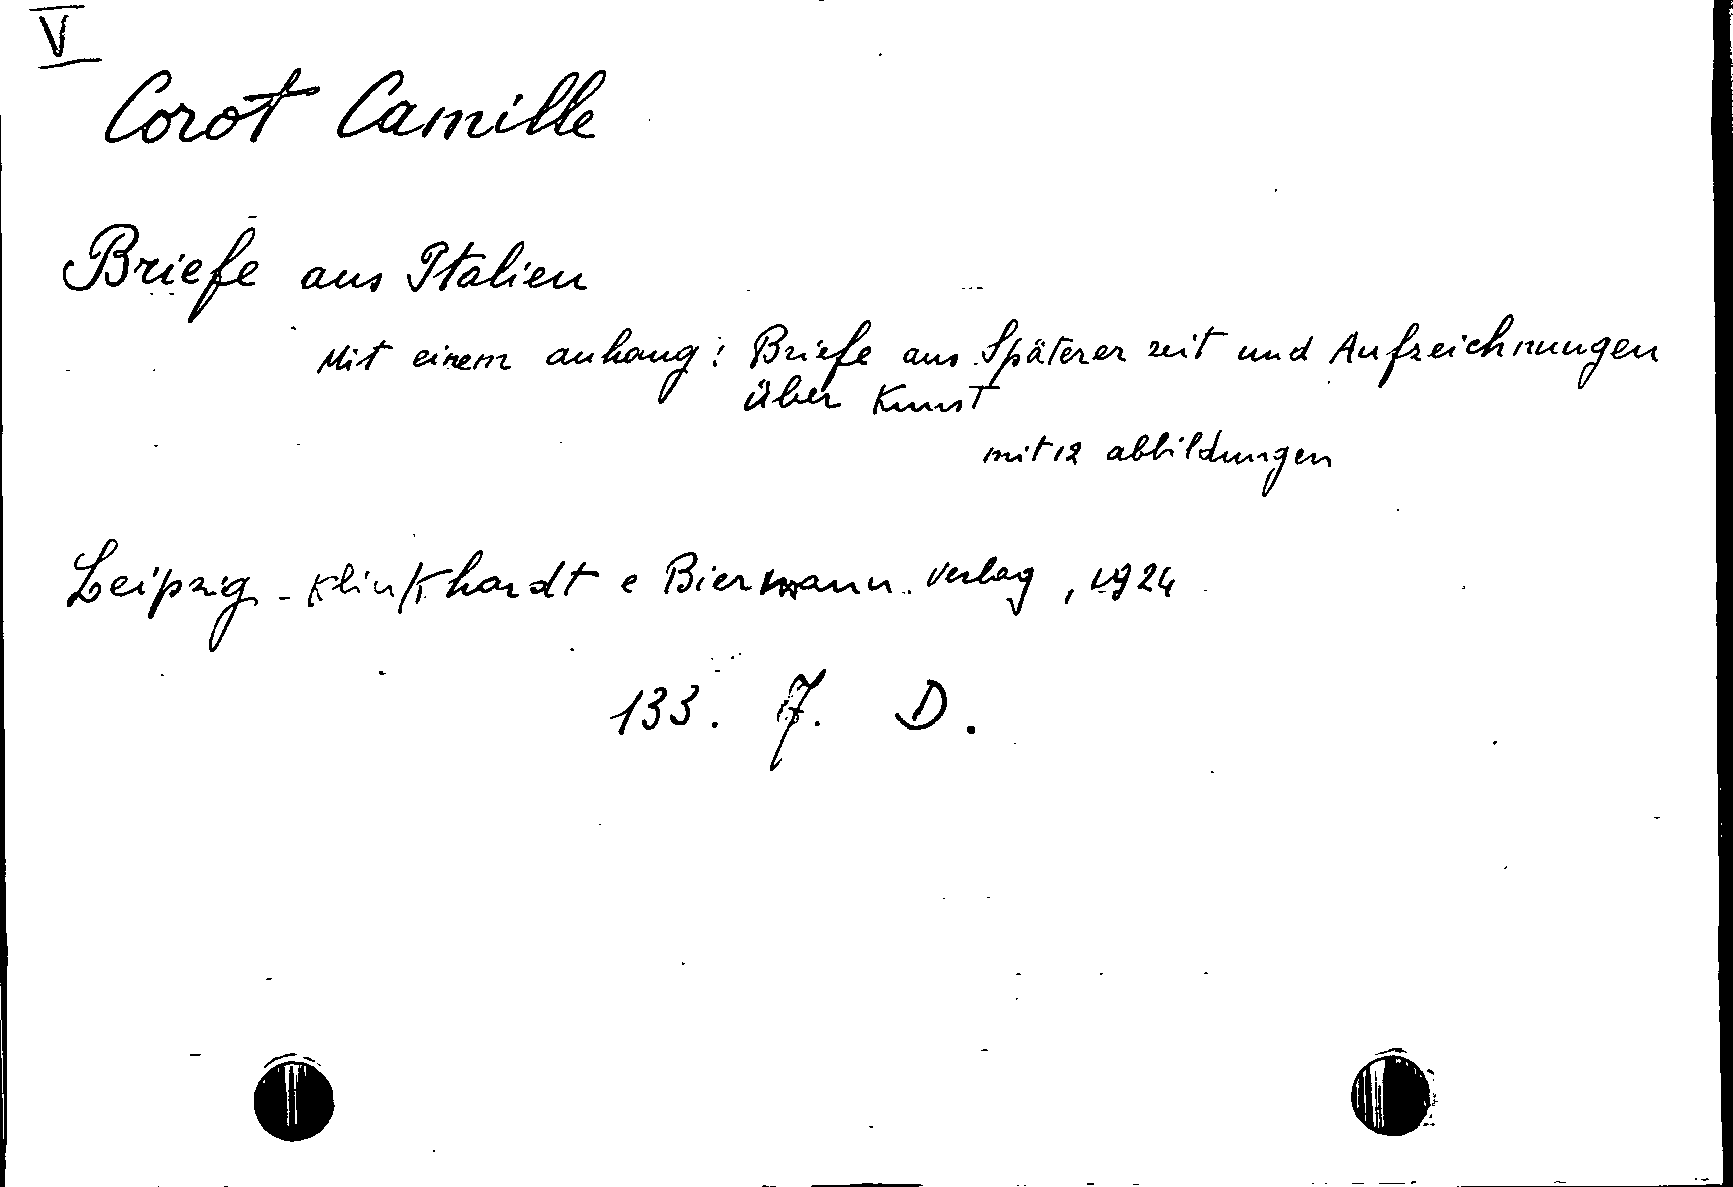 V
Corot Camille
Briefe aus Italien
Mit einem anhang: Briefe aus Späterer zeit und Aufzeichnungen
über Kunst
mit 12 abbildungen
Leipzig - Klinkhardt e Biermann Verlag, 1924
133. 7. D.